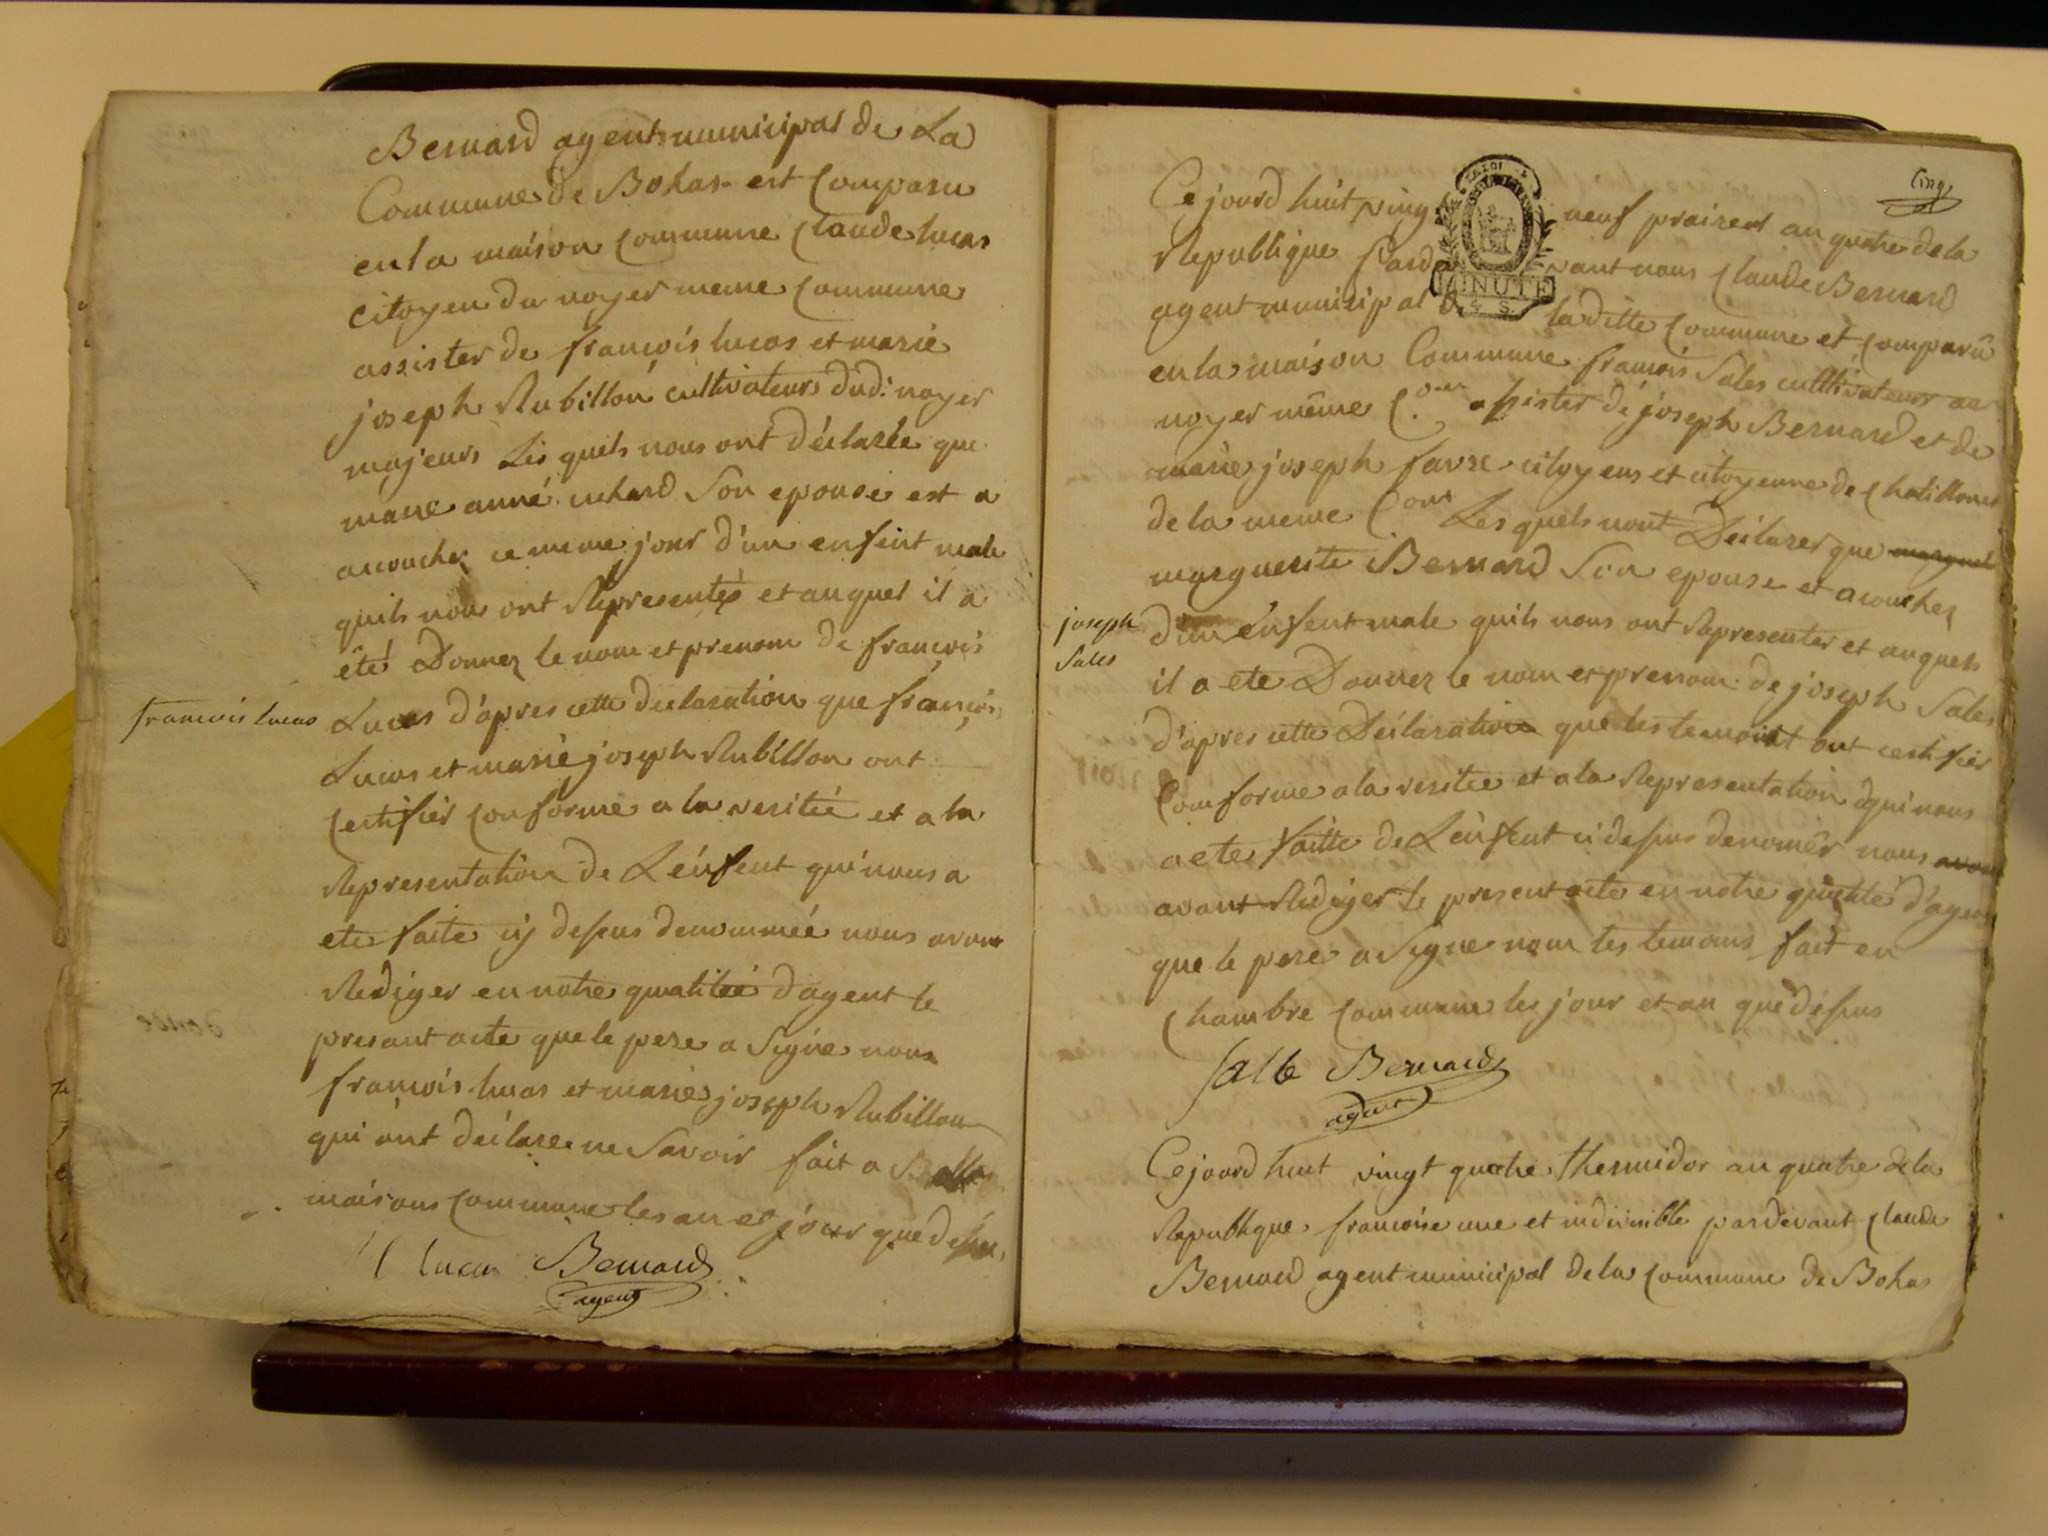 Bernard agent municipal de La
Commune de Bohas est Comparu
en la maison Commune Claude lucas
citoyen du noyer meme Commune
assister de francois lucas et marie
joseph Rubillon cultivateurs dud: noyer
majeurs Lesquels nous ont déclarée que
marie anné son epouse est a
acoucher ce meme jour d'un enfent male
quils nous ont Representés et auquel il a
été Donnez le nom et prenom de francois
francois lucas
Lucas d'apres cette declaration que francois
Lucas et marie joseph Rubillon ont
Certifier Conforme a la veritée et a la
Representation de Lenfent qui nous a
ete faite cy desus denommée nous avons
Rediger en notre qualitée d'agent le
presant acte que le pere a Signe non
francois lucas et marie joseph Rubillon
qui ont déclare ne Savoir fait a
maisons Commune les an et jour que desus
Lucas Bernard
agent
Cinq
Ce jourd huit vingt neuf praireal an quatre de la
Republique Pardevant nous Claude Bernard
agent municipal de la ditte Commune et Comparu
en la maison Commune francois Sales cultivateur au
noyer même C.oun assister de joseph Bernard et de
marie joseph favre citoyens et citoyenne de Chatillonet
de la meme Coun Lesquels nont Déclarer que
marguerite Bernard Son epouse et acoucher
joseph
Sales
d'un enfent male quils nous ont Representer et auquels
il a ete Donnez le nom et prenom de joseph Sales
d'apres cette Déclaration que les temoint ont certifier
Comforme a la veritee et a la Representation qui nous
a ete faitte de Lenfent ci desus denomér nous
avont Rediger le present acte en notre qualité d'agent
que le pere a Signe nom les temoins fait en
Chambre Commune les jour et an que desus
Salle Bernard
agent
Ce jourd huit vingt quatre thermidor an quatre de la
Republique francoise une et indivisible pardevant Claude
Bernard agent municipal de la Commune de Bohas
MINUTE